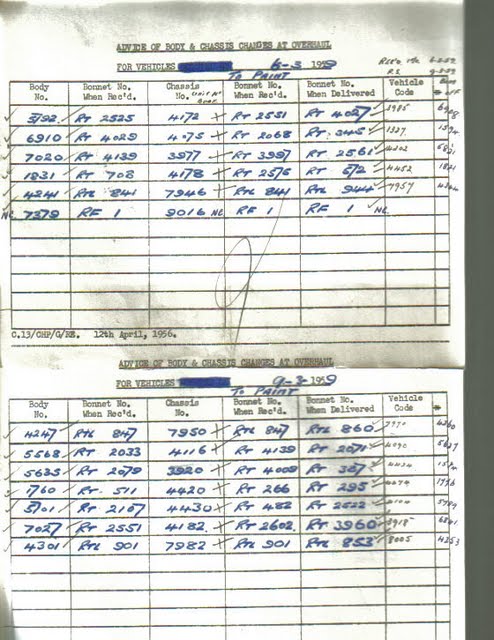 ADVICE OF BODY & CHASSIS CHANGES AT OVERHAUL
FOR VEHICLES 6-3 1959
TO PAINT
Body No. Bonnet No. When Rec'd. Chassis No. Bonnet No. When Rec'd. Bonnet No. When Delivered Vehicle Code
5192 RT 2525 4172 RT 2551 RT 4027 3985
6910 RT 4029 4075 RT 2068 RT 345 1327
7020 RT 4139 3977 RT 3997 RT 2561
1831 RT 708 4178 RT 2575 RT 572 4452 1821
4241 RTL 841 7946 RTL 841 RTL 944 7957
NR 7379 RF 1 9016 NR RF 1 RF 1 NR
C.13/CHP/G/RE. 12th April, 1956.
ADVICE OF BODY & CHASSIS CHANGES AT OVERHAUL
FOR VEHICLES 9-3-1959
TO PAINT
Body No. Bonnet No. When Rec'd. Chassis No. Bonnet No. When Rec'd. Bonnet No. When Delivered Vehicle Code
4247 RTL 847 7950 RTL 847 RTL 860
5568 RT 2033 4116 RT 4139 RT 2071 4090
5635 RT 2079 3920 RT 4009 RT 367
1760 RT 511 4420 RT 266 RT 295
5701 RT 2167 4430 RT 482 RT 2522
7027 RT 2551 4182 RT 2602 RT 3960 3918
4301 RTL 901 7982 RTL 901 RTL 853 8005 4253